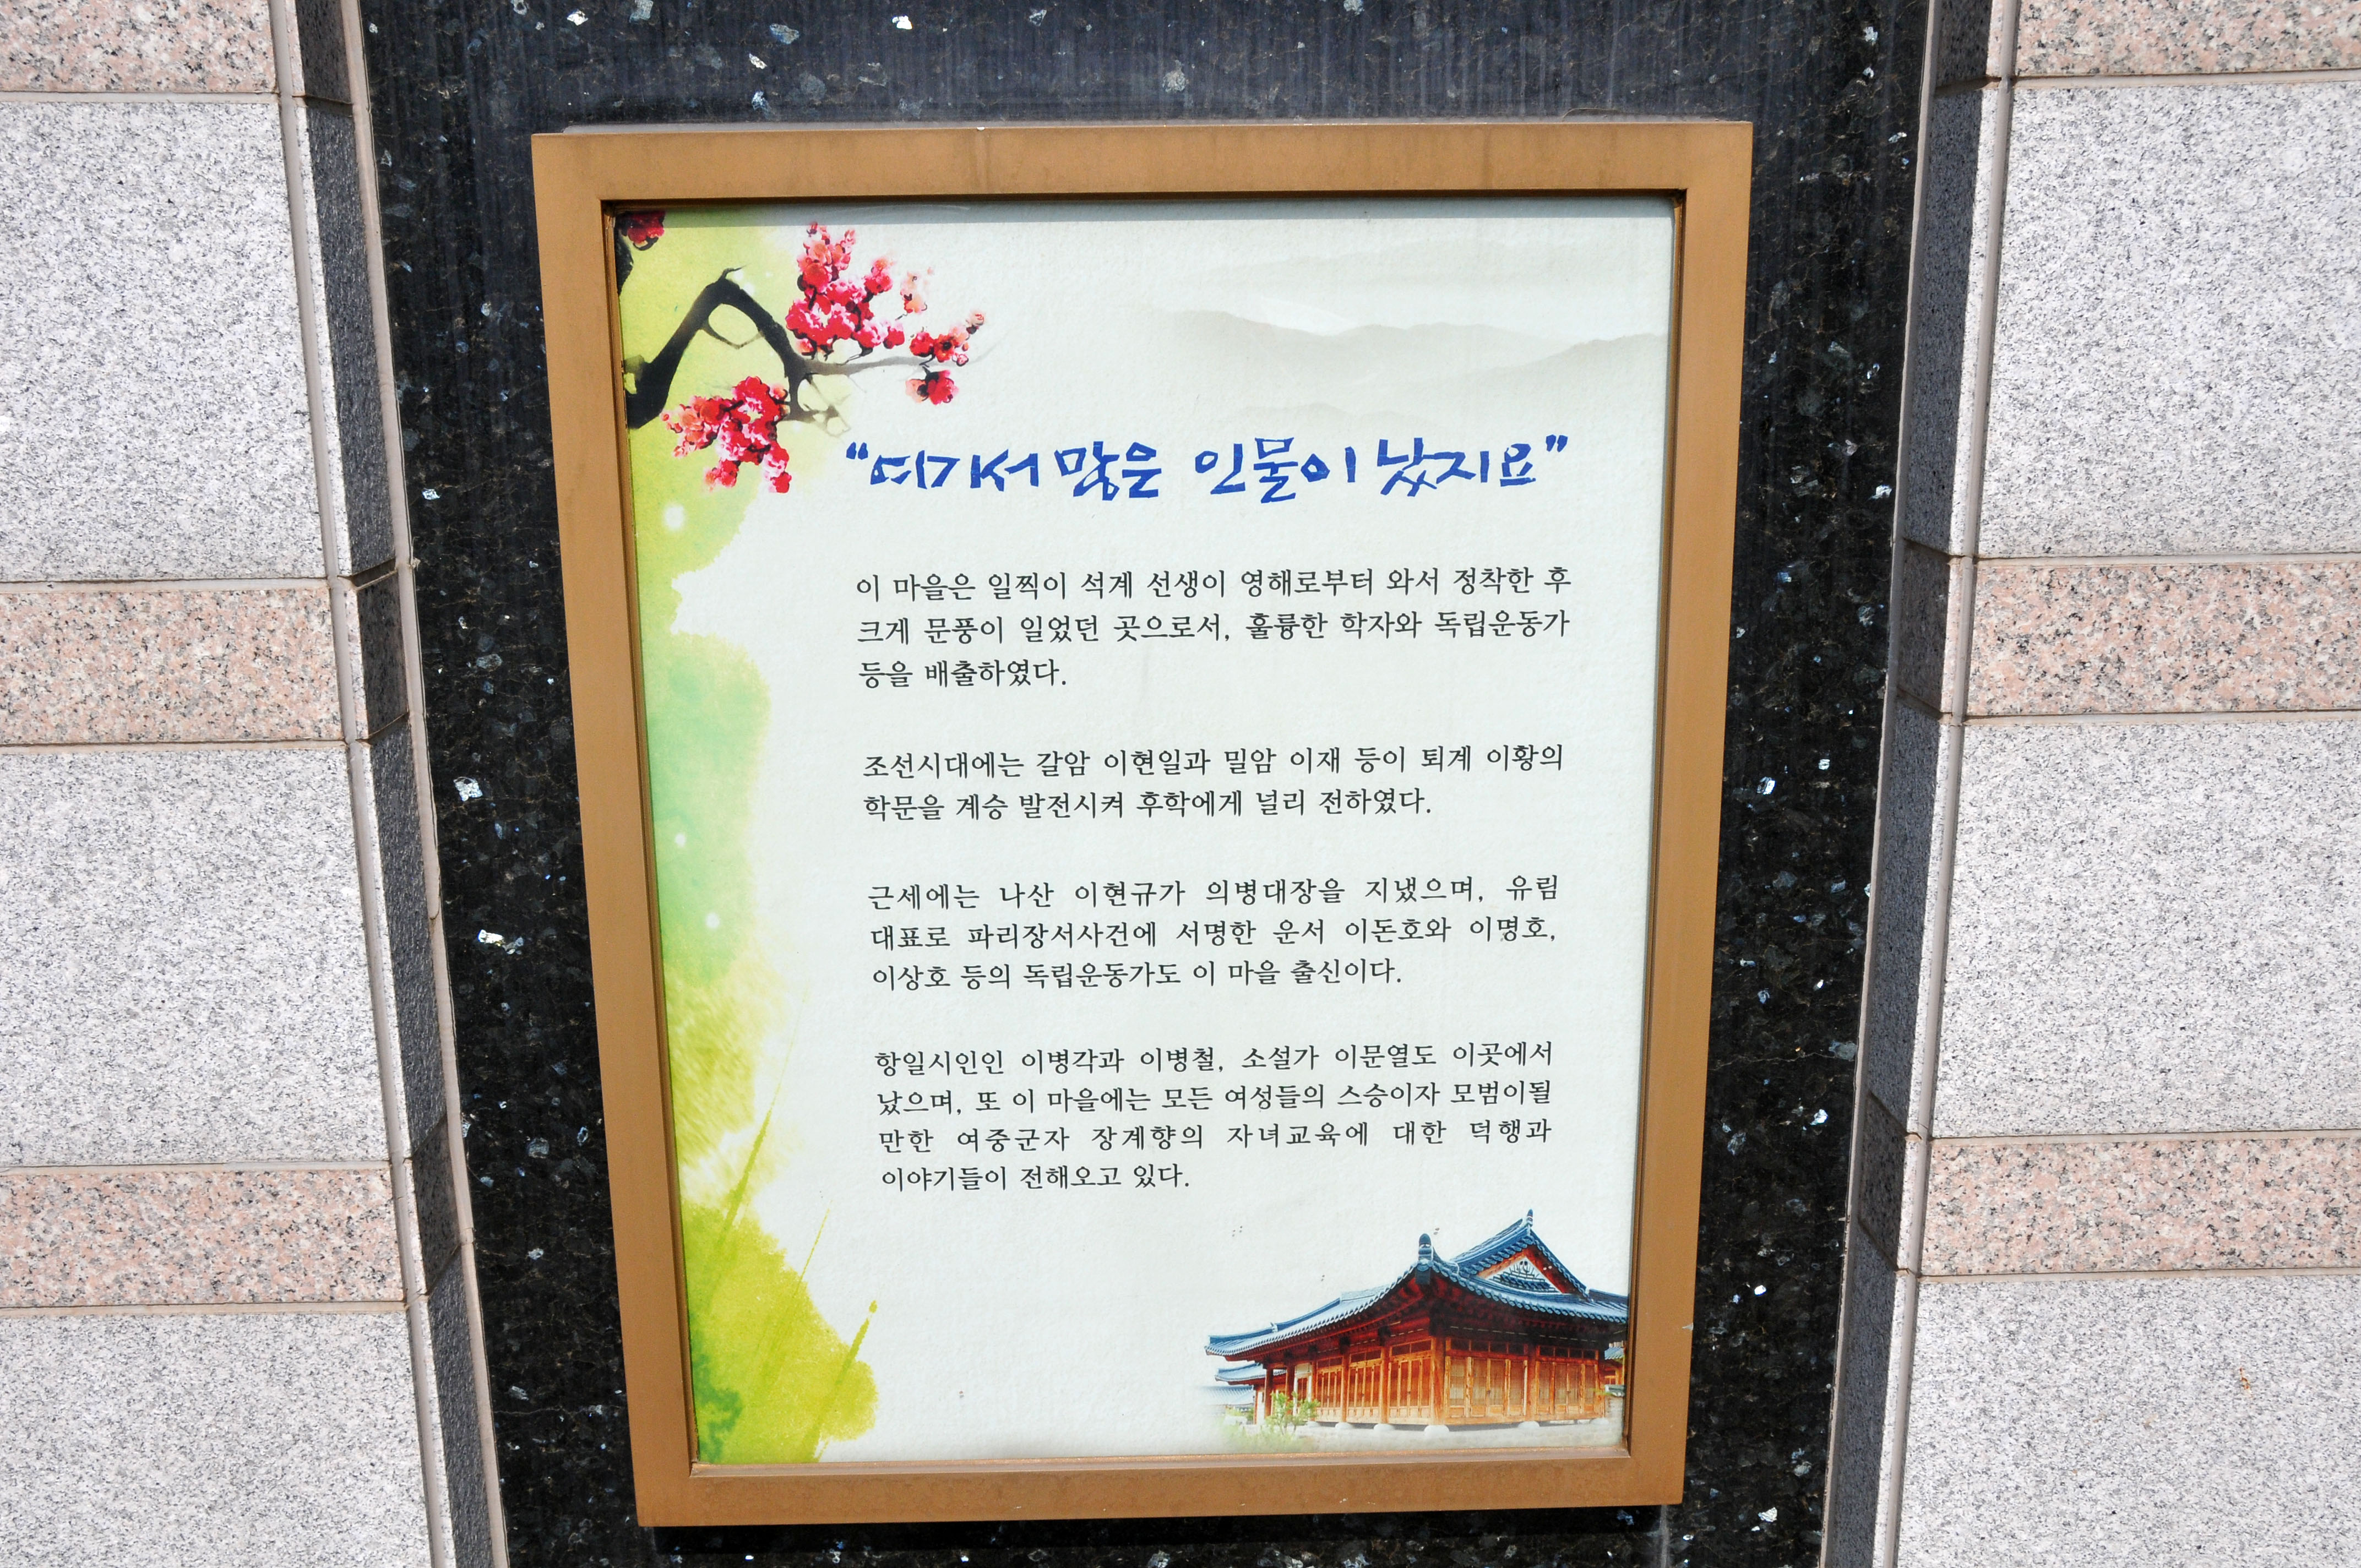 “여기서 많은 인물이 났지요”
이 마을은 일찍이 석계 선생이 영해로부터 와서 정착한 후
크게 문풍이 일었던 곳으로서, 훌륭한 학자와 독립운동가
등을 배출하였다.
조선시대에는 갈암 이현일과 밀암 이재 등이 퇴계 이황의
학문을 계승 발전시켜 후학에게 널리 전하였다.
근세에는 나산 이현규가 의병대장을 지냈으며, 유림
대표로 파리장서사건에 서명한 운서 이돈호와 이명호,
이상호 등의 독립운동가도 이 마을 출신이다.
항일시인인 이병각과 이병철, 소설가 이문열도 이곳에서
났으며, 또 이 마을에는 모든 여성들의 스승이자 모범이될
만한 여중군자 장계향의 자녀교육에 대한 덕행과
이야기들이 전해오고 있다.